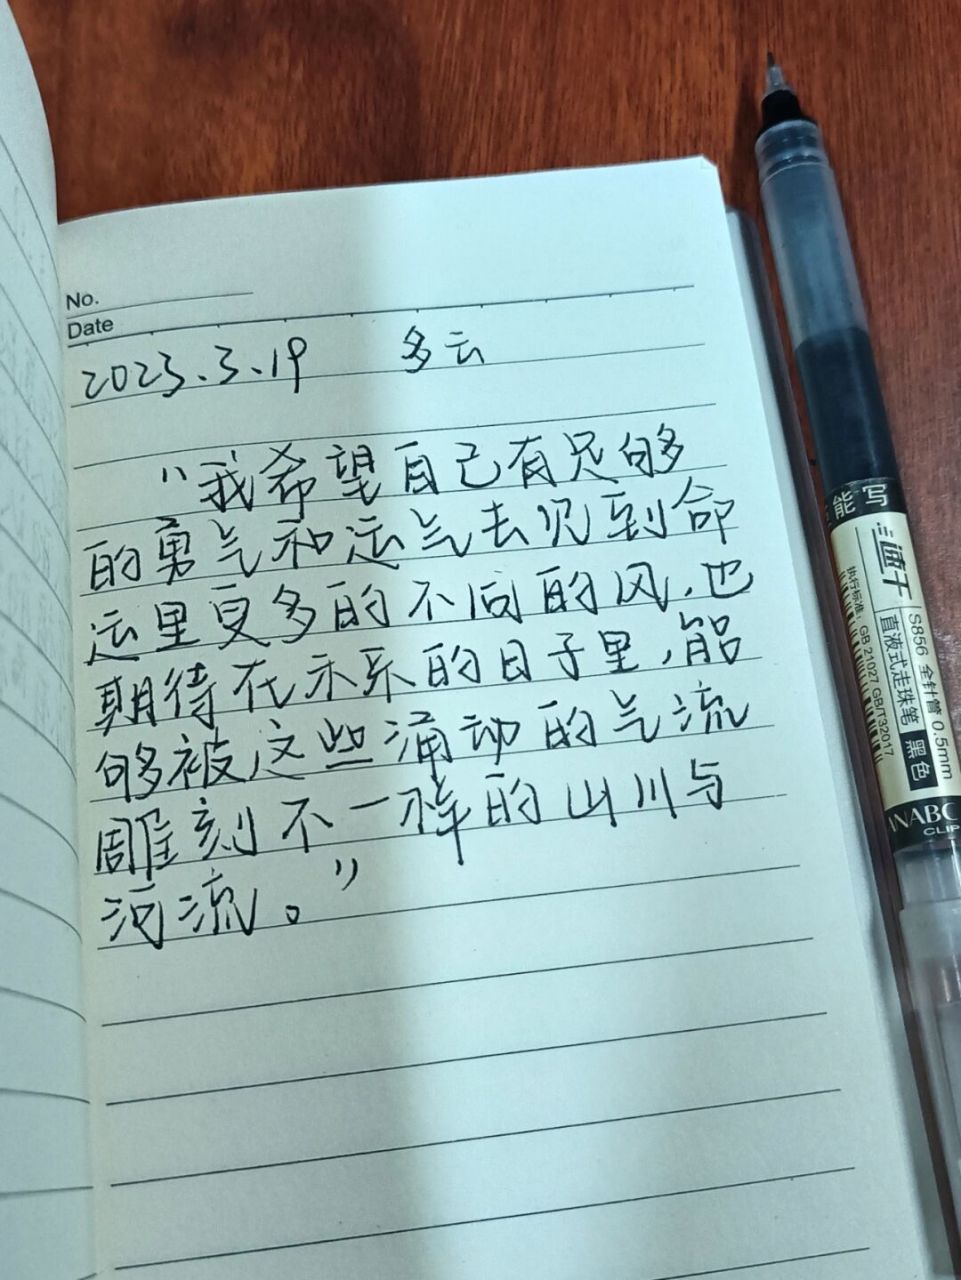 No.
Date
2023.3.19 多云
“我希望自己有足够
的勇气和运气去见到命
运里更多的不同的风,也
期待在未来的日子里,能
够被这些涌动的气流
雕刻不一样的山川与
河流。”
能写
S856 全针管 0.5mm
直液式走珠笔 黑色
执行标准: GB 21027 GB/T32017
ANABC
CLIP